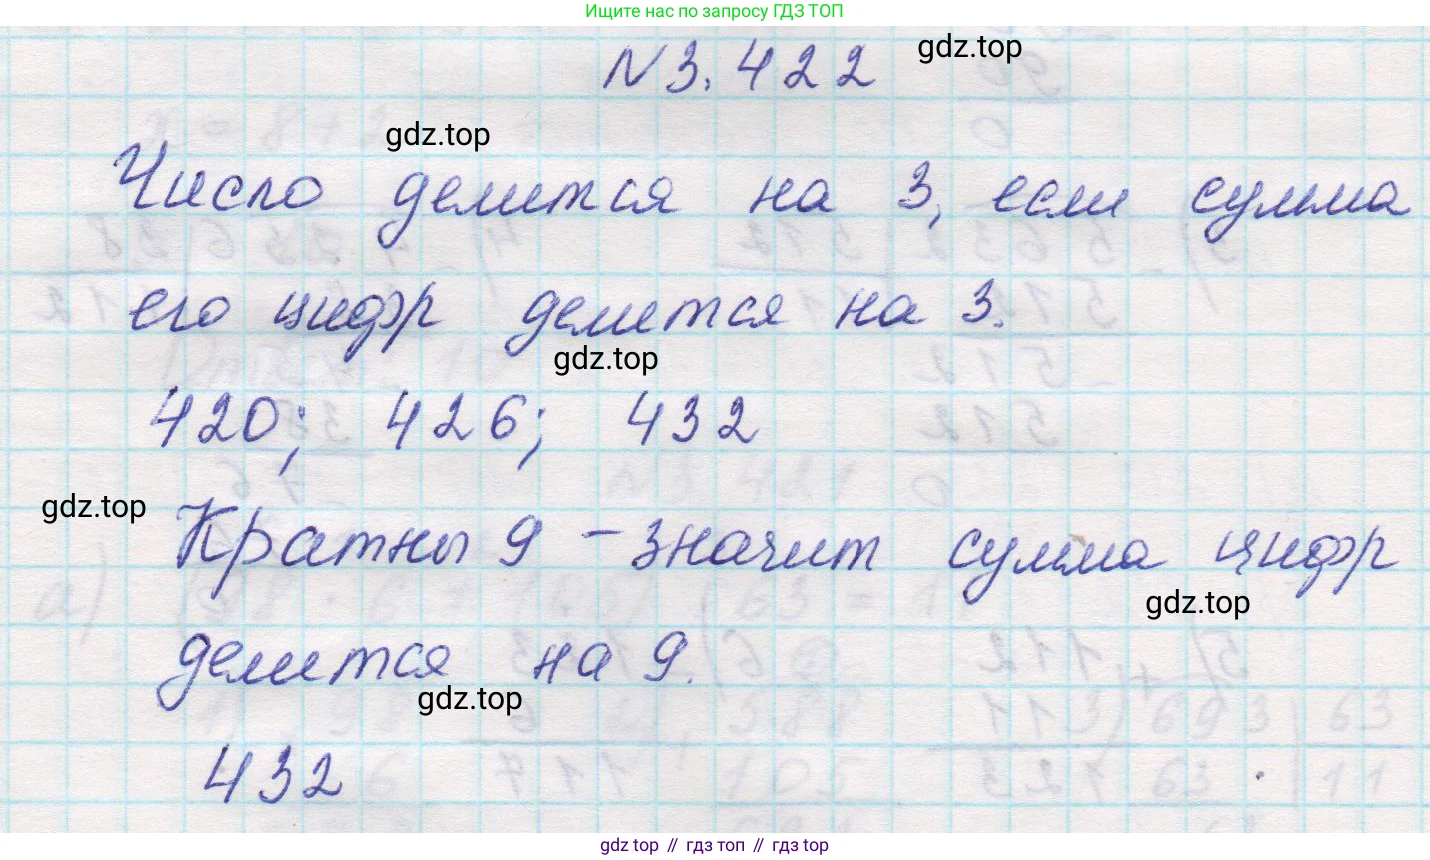 Ищите нас по запросу ГДЗ ТОП
N 3.422
gdz.top
gdz.top
Число делится на 3, если сумма
его цифр делится на 3.
gdz.top
420; 426; 432
gdz.top
Кратны 9 – значит сумма цифр
gdz.top
делится на 9.
gdz.top
432
gdz top // гдз топ // гдз top